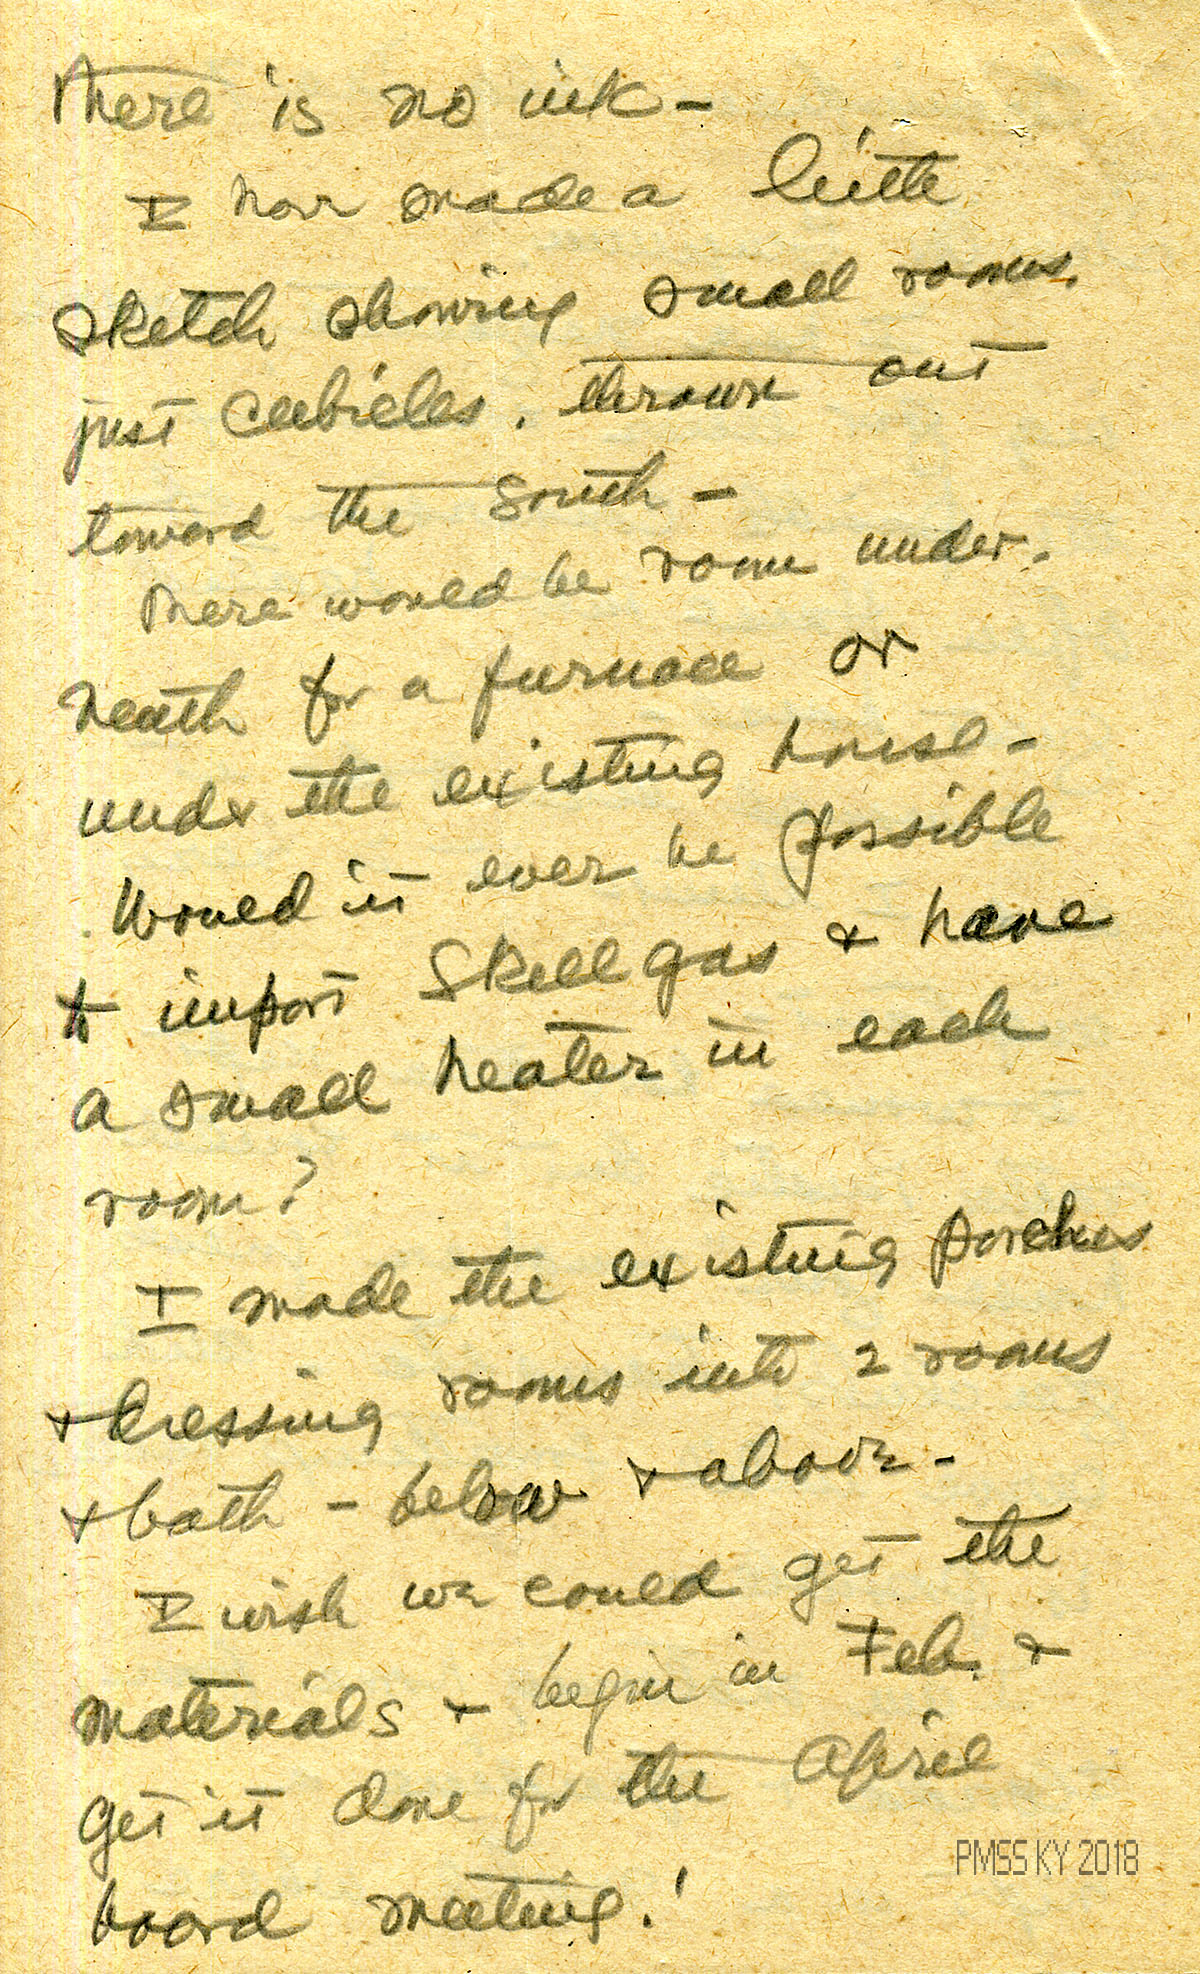 There is no ink —
I have made a little
sketch showing small rooms,
just cubicles, thrown out
toward the South —
There would be room under-
neath for a furnace or
under the existing house —
Would it ever be possible
to import Skellgas & have
a small heater in each
room?
I made the existing porches
& dressing rooms into 2 rooms
& bath — below & above —
I wish we could get the
materials & begin in Feb. &
get it done for the April
board meeting!
PMSS KY 2018